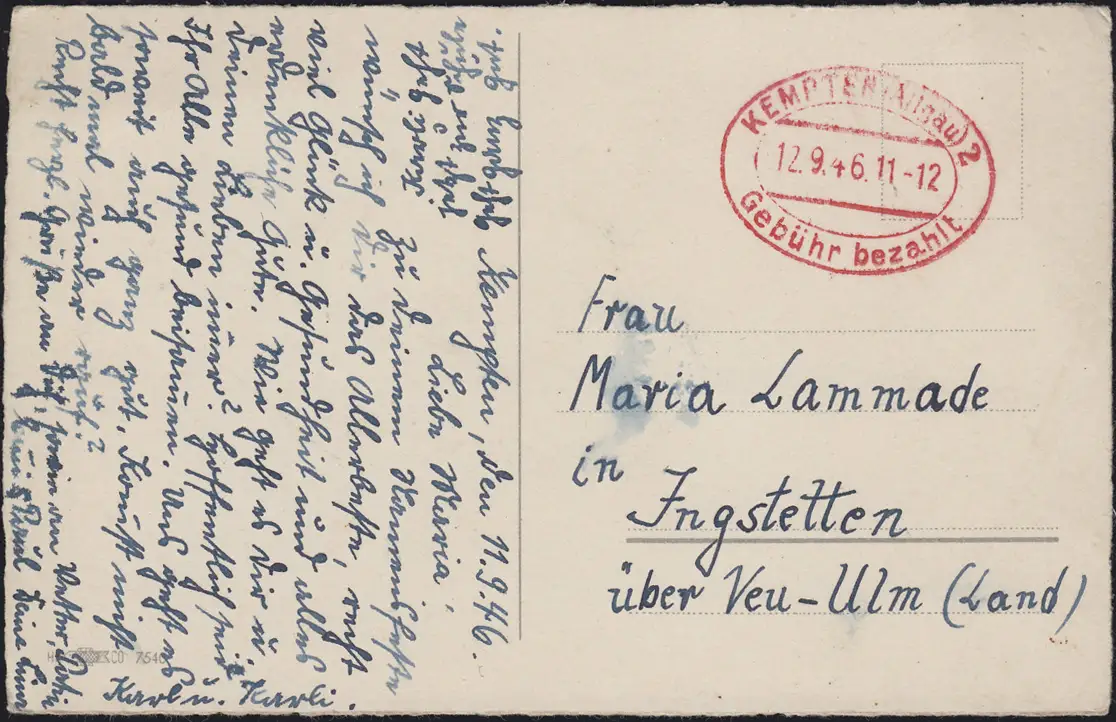 Kempten, den 11.9.46.
Liebe Maria,
Zu deinem Namensfeste
wünsch ich Dir das Allerbeste, recht
viel Glück u. Gesundheit und alles
erdenkliche Gute. Wie geht es Dir u.
Deinem Lieben immer? Hoffentlich seid
Ihr Alle gesund beisammen. Uns geht es
soweit auch ganz gut. Kommst nicht
bald mal wieder rauf?
Recht herzl. Grüße an Dich, sowie an Vater,
Karl u. Karli.
KEMPTEN (Allgäu) 2
12.9.46.11-12
Gebühr bezahlt
Frau
Maria Lammade
in
Ingstetten
über Neu-Ulm (Land)
CO 7540